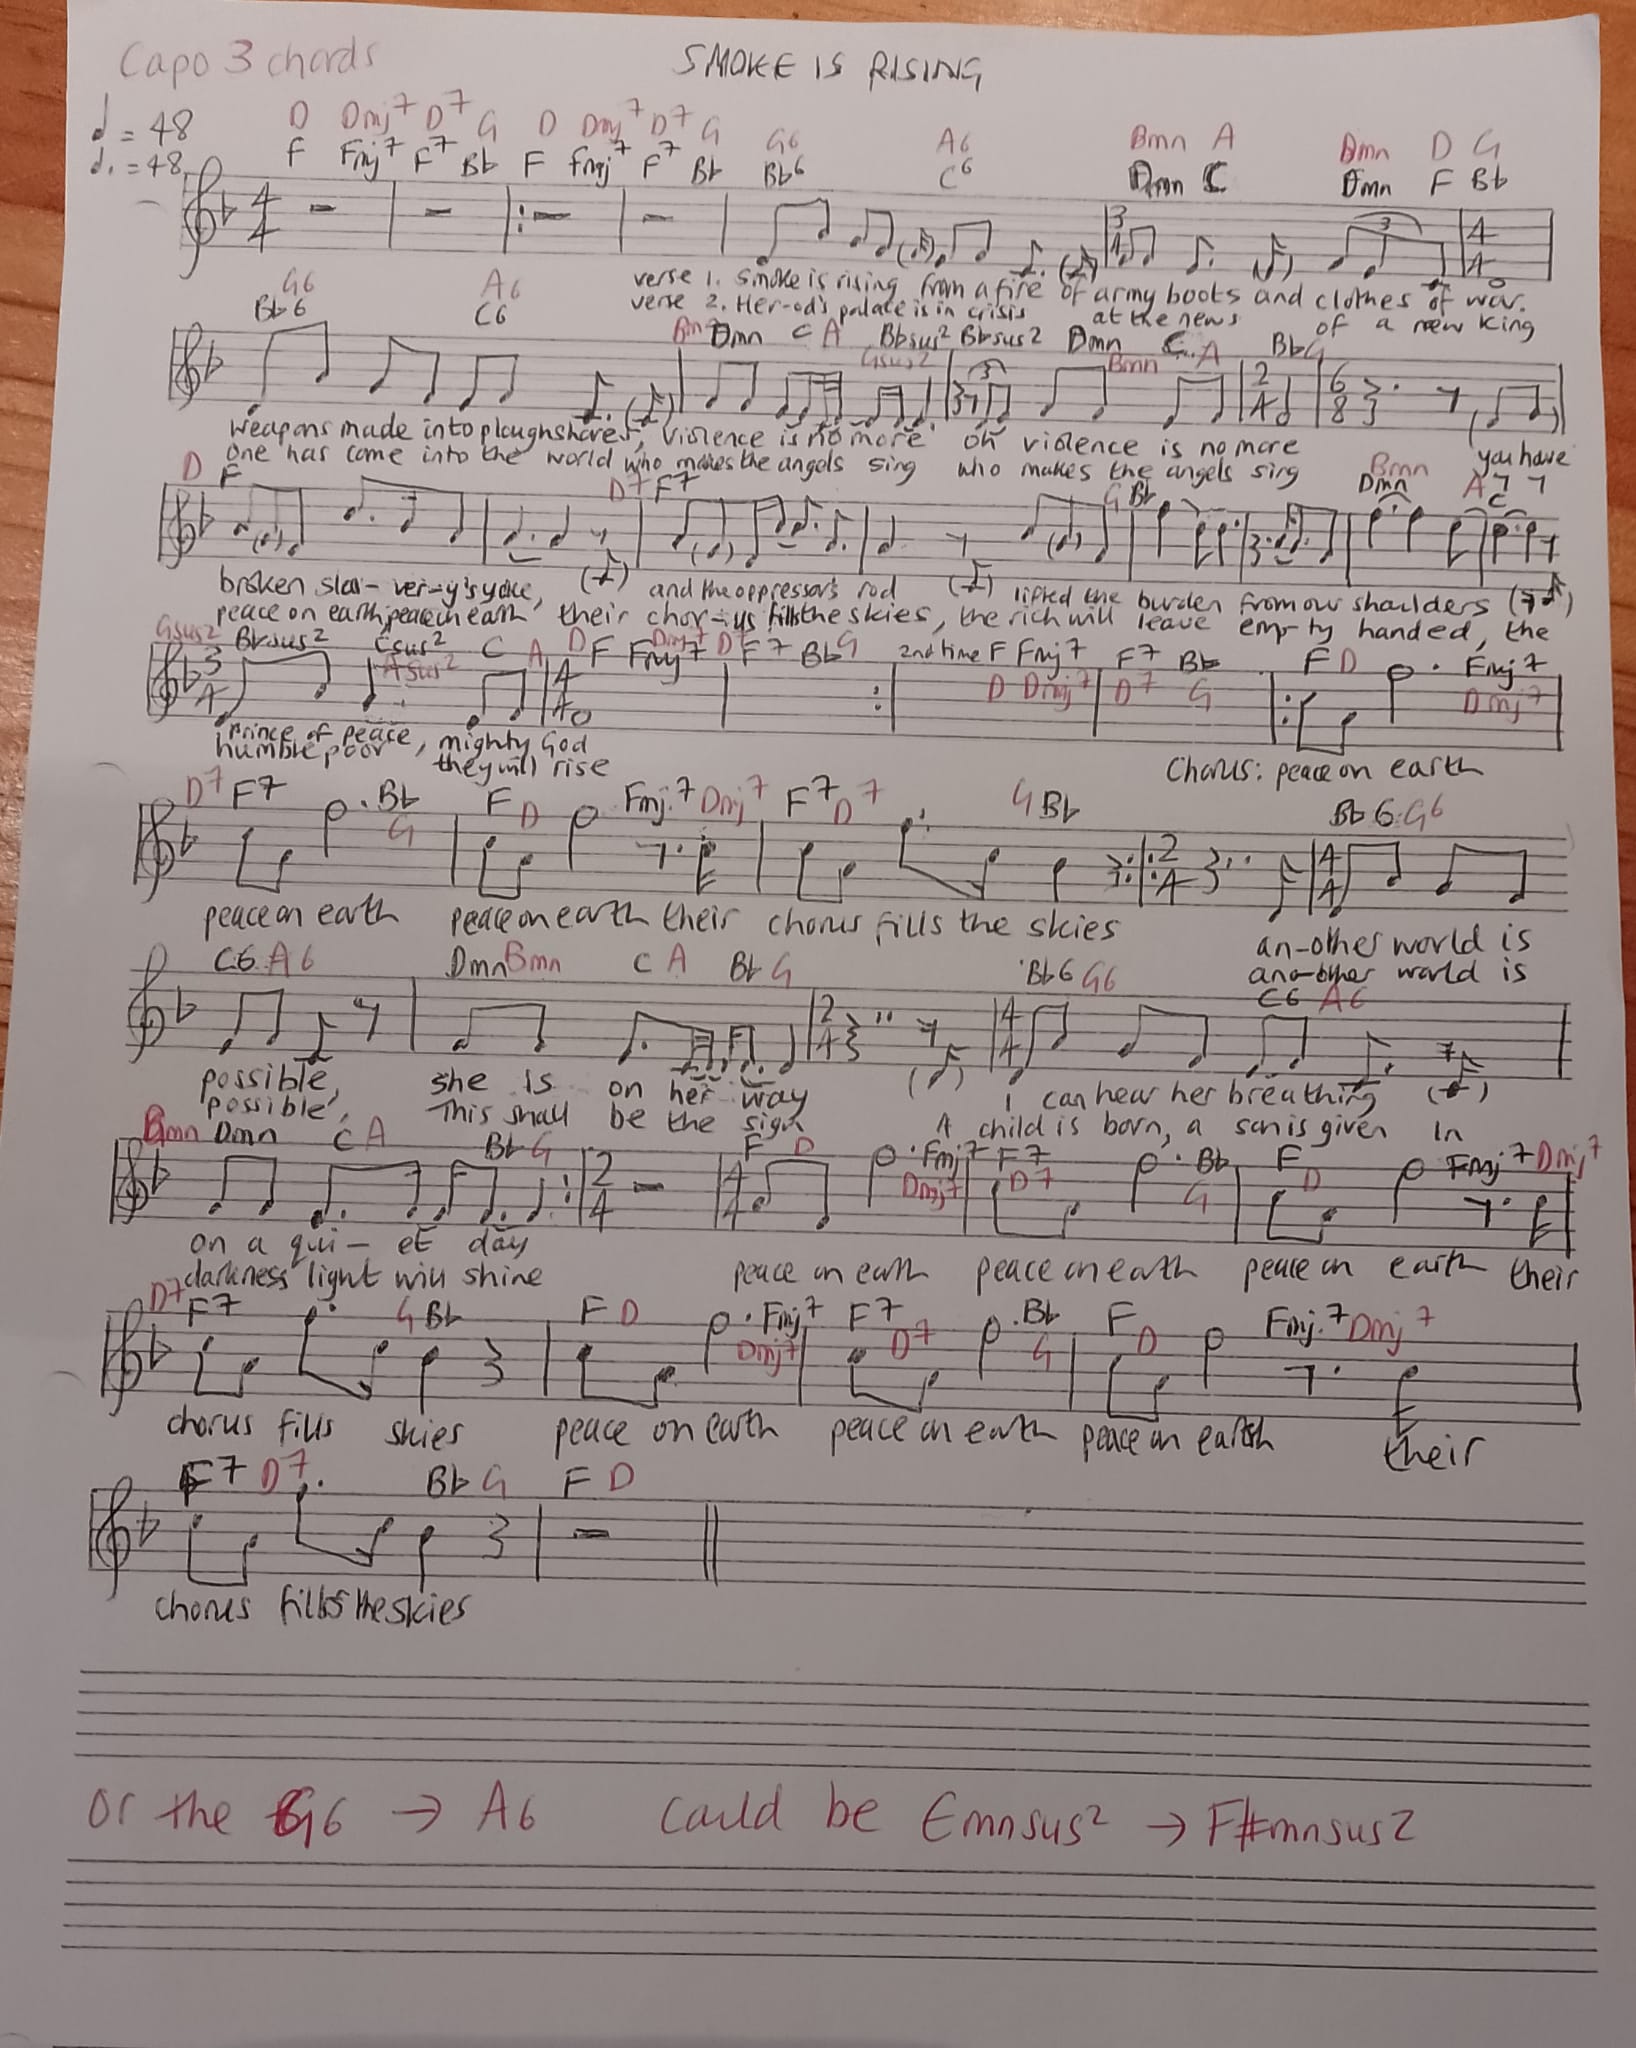 Capo 3 chords
SMOKE IS RISING
= 48
D Dmj7 D7 G D Dmj7 D7 G G6 A6 Bmn A Bmn D G
= 48
F Fmj7 F7 Bb F Fmj7 F7 Bb Bb6 C6 Dmn C Dmn F Bb
4 4 3 4 3 4 4
verse 1. Smoke is rising from a fire of army boots and clothes of war.
verse 2. Her-od's palace is in crisis at the news of a new King
G6 A6
Bb6 C6 Bmn Dmn C A Bbsus2 Bbsus2 Dmn C A Bb G
Gsus2 Bmn
3 2 4 6 8
weapons made into ploughshares, violence is no more oh violence is no more you have
One has come into the world who makes the angels sing who makes the angels sing
D F D7 F7 G Bb Bmn Dmn A C
broken slav-ver-y's yoke, and the oppressor's rod lifted the burden from our shoulders
peace on earth, peace on earth their chor-us fills the skies, the rich will leave empty handed, the
Gsus2 Bbsus2 Csus2 C A D F Dmj7 Fmj7 D7 F7 Bb G 2nd time F Fmj7 F7 Bb F D Fmj7
Asus2 D Dmj7 D7 G Dmj7
3 4 4 4
Prince of peace, mighty God
humble poor they will rise
Chorus: peace on earth
D7 F7 Bb F D Fmj.7 Dmj7 F7 D7 G Bb Bb6 G6
G
2 4 4 4
peace on earth peace on earth their chorus fills the skies an-other world is
ano-other world is
C6 A6 Dmn Bmn C A Bb G Bb6 G6 C6 A6
2 4 4 4
possible, she is on her way I can hear her breathing
possible, This shall be the sign A child is born, a son is given In
Bmn Dmn C A Bb G F D Fmj7 F7 Bb F Fmj7 Dmj7
Dmj7 D7 G D
2 4 4 4
on a qui-et day
darkness light will shine peace on earth peace on earth peace on earth their
D7 F7 G Bb F D Fmj7 F7 Bb F Fmj.7 Dmj7
Dmj7 D7 G D
chorus fills skies peace on earth peace on earth peace on earth their
F7 D7 Bb G F D
chorus fills the skies
Or the G6 → A6 could be Emnsus2 → F#mnsus2